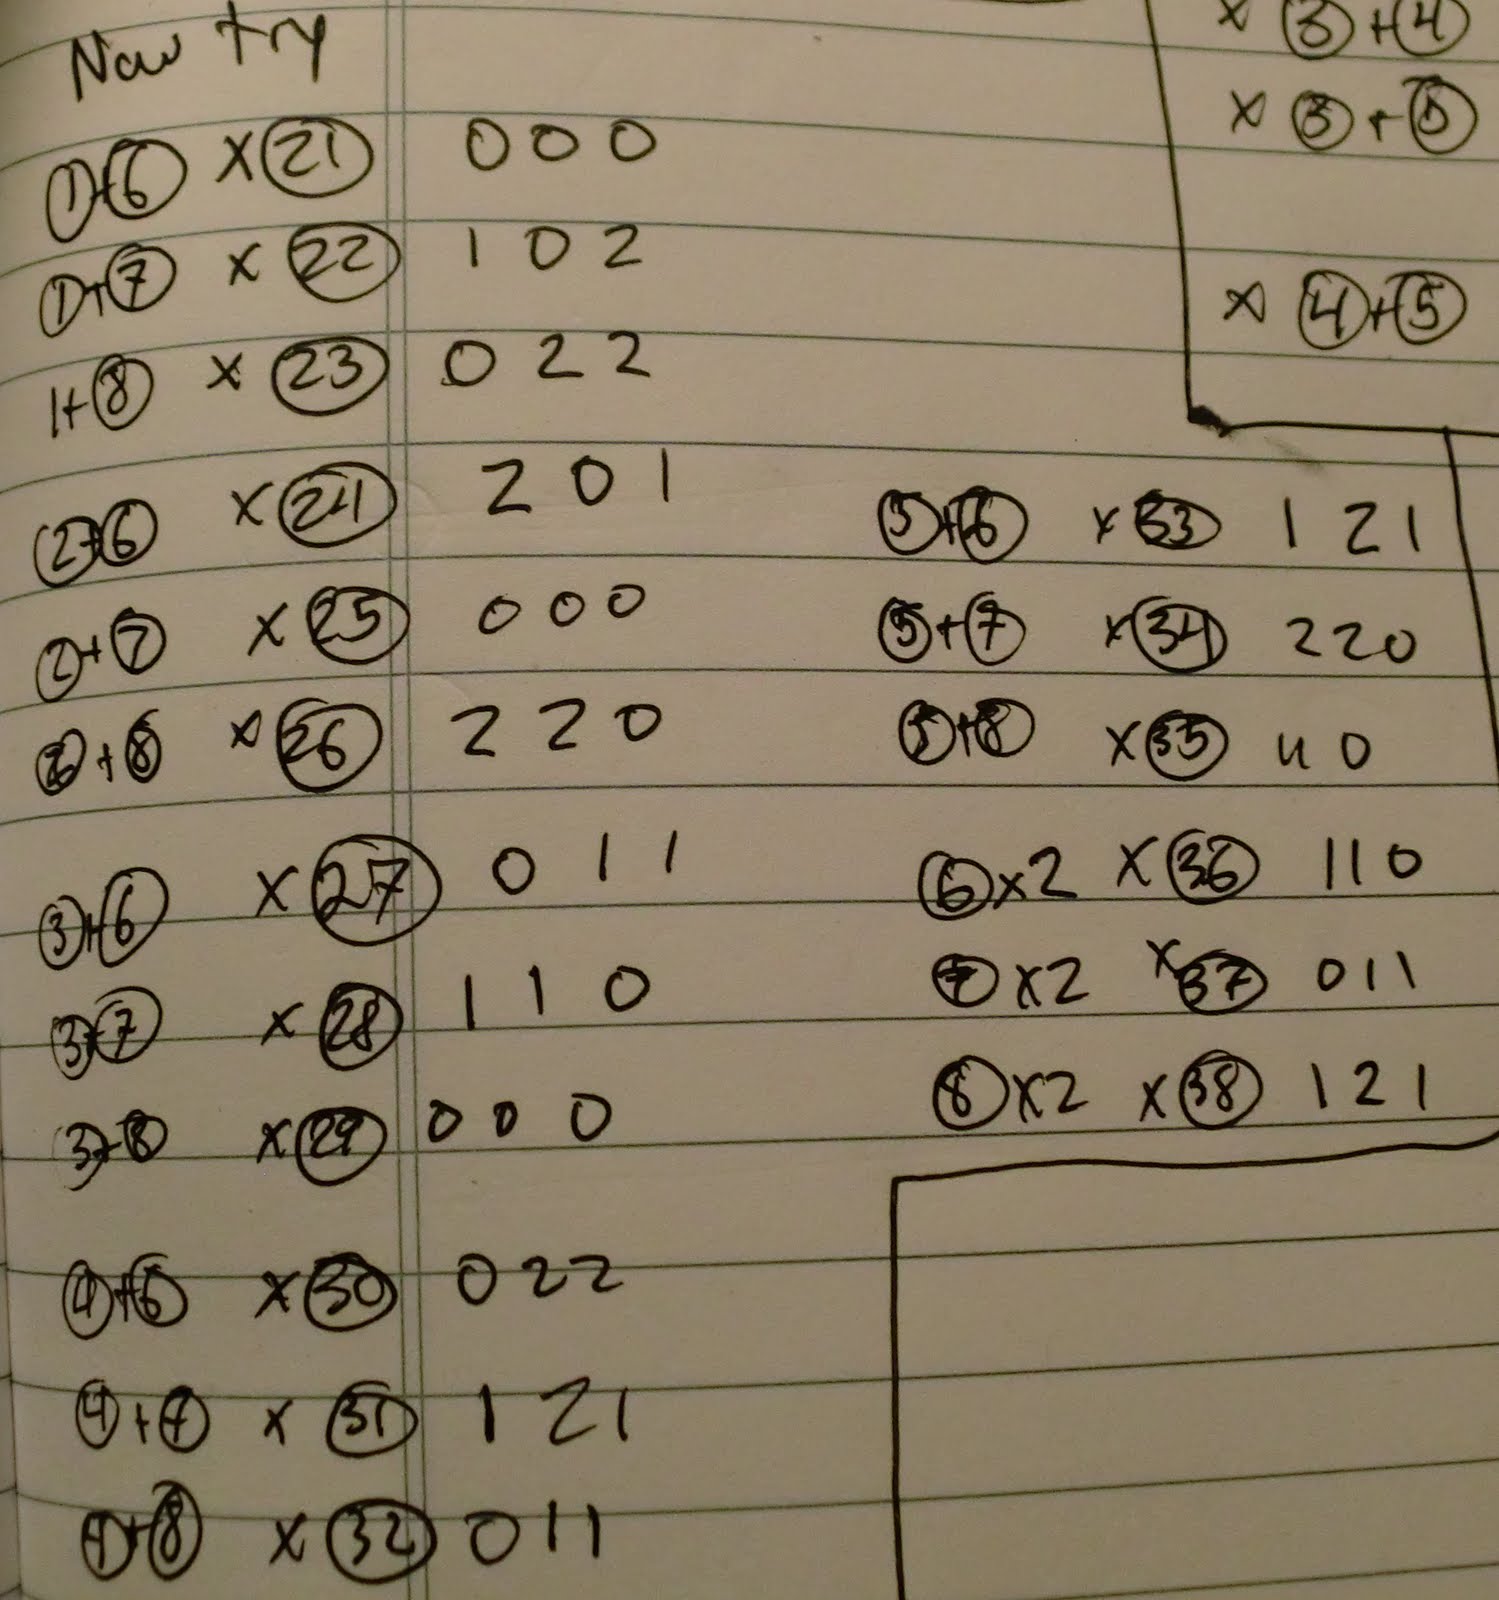 Now try
① + ⑥ × ㉑ 0 0 0
① + ⑦ × ㉒ 1 0 2
1 + ⑧ × ㉓ 0 2 2
② + ⑥ × ㉔ 2 0 1
② + ⑦ × ㉕ 0 0 0
② + ⑧ × ㉖ 2 2 0
③ + ⑥ × ㉗ 0 1 1
③ + ⑦ × ㉘ 1 1 0
③ + ⑧ × ㉙ 0 0 0
④ + ⑥ × ㉚ 0 2 2
④ + ⑦ × ㉛ 1 2 1
④ + ⑧ × ㉜ 0 1 1
× ③ + ④
× ③ + ⑤
× ④ + ⑤
⑤ + ⑥ × ㉝ 1 2 1
⑤ + ⑦ × ㉞ 2 2 0
⑤ + ⑧ × ㉟ 0
⑥ × 2 × ㊱ 1 1 0
⑦ × 2 × ㊲ 0 1 1
⑧ × 2 × ㊳ 1 2 1